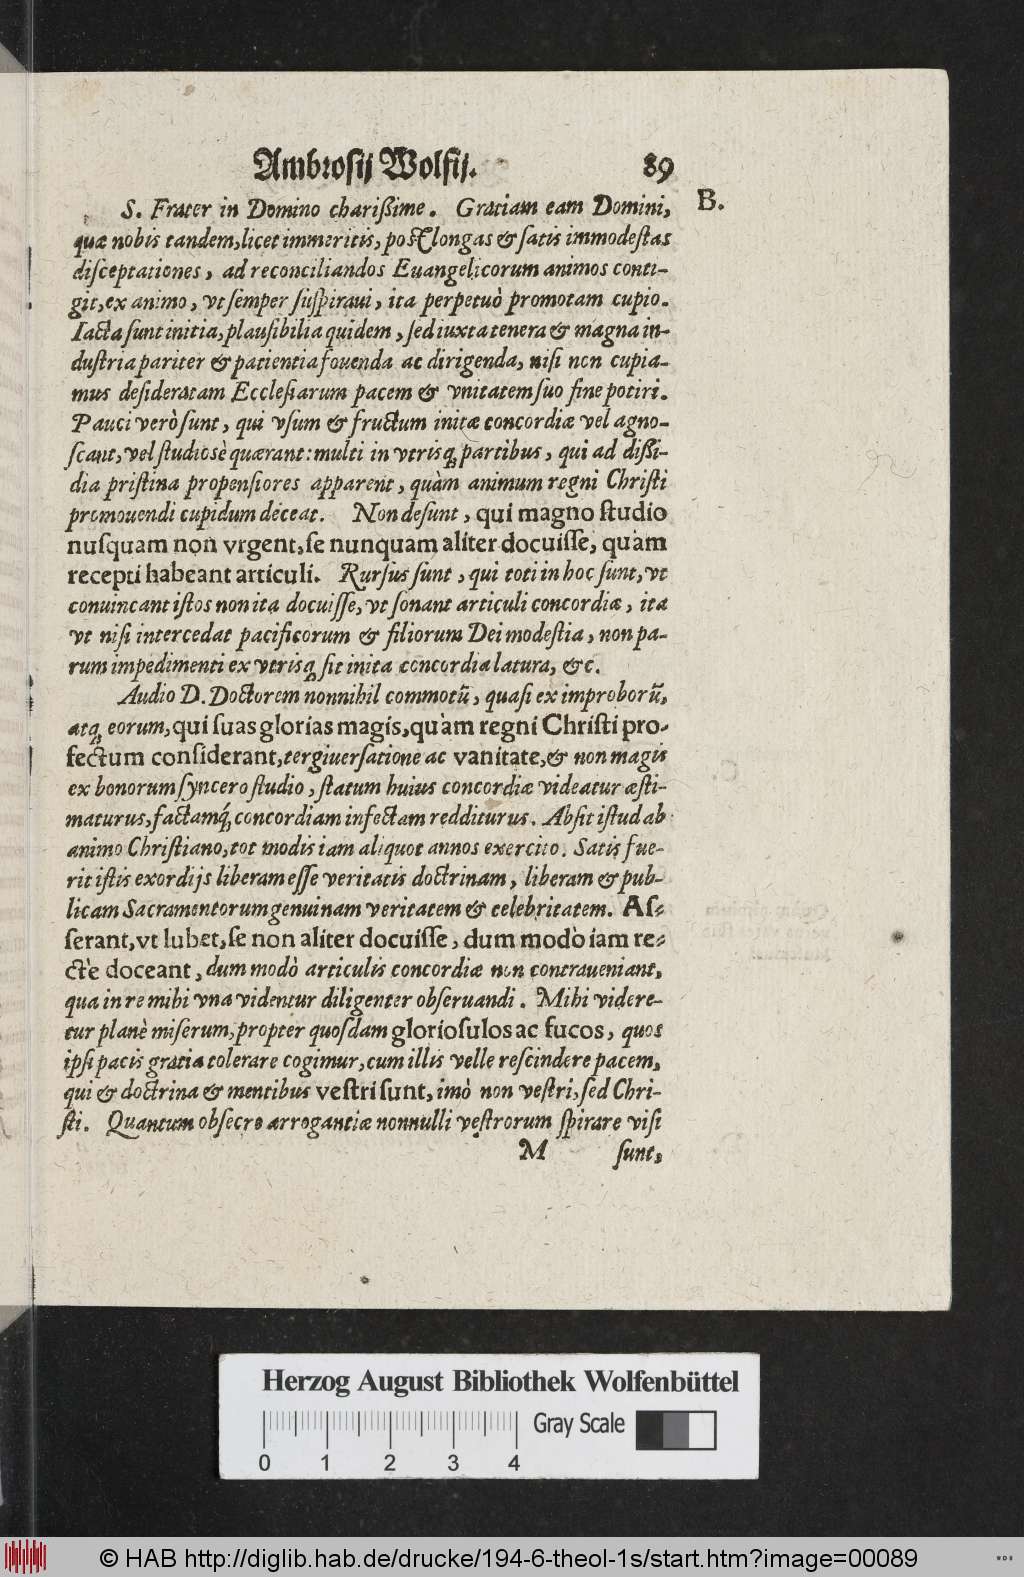 Ambrosij Wolfij. 89
B.
S. Frater in Domino charißime. Gratiam eam Domini,
quæ nobis tandem, licet immeritis, post longas & satis immodestas
disceptationes, ad reconciliandos Euangelicorum animos conti-
git, ex animo, vt semper suspiraui, ita perpetuò promotam cupio.
Iacta sunt initia, plausibilia quidem, sed iuxta tenera & magna in-
dustria pariter & patientia fouenda ac dirigenda, nisi non cupia-
mus desideratam Ecclesiarum pacem & vnitatem suo fine potiri.
Pauci verò sunt, qui vsum & fructum initæ concordiæ vel agno-
scant, vel studiosè quærant: multi in vtrisq; partibus, qui ad dißi-
dia pristina propensiores apparent, quàm animum regni Christi
promouendi cupidum deceat. Non desunt, qui magno studio
nusquam non vrgent, se nunquam aliter docuisse, quàm
recepti habeant articuli. Rursius sunt, qui toti in hoc sunt, vt
conuincant istos non ita docuisse, vt sonant articuli concordiæ, ita
vt nisi intercedat pacificorum & filiorum Dei modestia, non pa-
rum impedimenti ex vtrisq; sit inita concordia latura, &c.
Audio D. Doctorem nonnihil commotũ, quasi ex improborũ,
atq; eorum, qui suas glorias magis, quàm regni Christi pro-
fectum considerant, tergiuersatione ac vanitate, & non magis
ex bonorum syncero studio, statum huius concordiæ videatur æsti-
maturus, factamq́; concordiam infectam redditurus. Absit istud ab
animo Christiano, tot modis iam aliquot annos exercito. Satis fue-
rit istis exordijs liberam esse veritatis doctrinam, liberam & pub-
licam Sacramentorum genuinam veritatem & celebritatem. As-
serant, vt lubet, se non aliter docuisse, dum modò iam re-
ctè doceant, dum modò articulis concordiæ non contraueniant,
qua in re mihi vna videntur diligenter obseruandi. Mihi videre-
tur planè miserum, propter quosdam gloriosulos ac fucos, quos
ipsi pacis gratia tolerare cogimur, cum illis velle rescindere pacem,
qui & doctrina & mentibus vestri sunt, imò non vestri, sed Chri-
sti. Quantum obsecro arrogantiæ nonnulli vestrorum spirare visi
M sunt,
Herzog August Bibliothek Wolfenbüttel
Gray Scale
0 1 2 3 4
© HAB http://diglib.hab.de/drucke/194-6-theol-1s/start.htm?image=00089